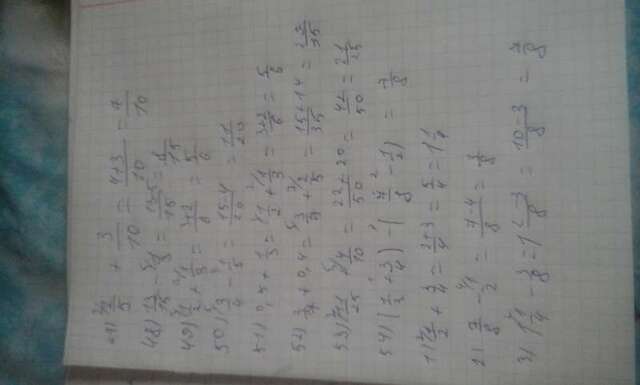 47) 2/5 + 3/10 = 4+3/10 = 7/10
48) 13/15 - 1/3 = 13-5/15 = 8/15
49) 1/2 + 1/3 = 3+2/6 = 5/6
50) 3/4 - 1/5 = 15-4/20 = 11/20
51) 0,5 + 1/3 = 1/2 + 1/3 = 3+2/6 = 5/6
52) 3/7 + 0,4 = 3/7 + 2/5 = 15+14/35 = 29/35
53) 11/25 + 4/10 = 22+20/50 = 42/50 = 21/25
54) (1/2 + 3/4) - (7/8 - 1/2) = 7/8
1) 1/2 + 3/4 = 2+3/4 = 5/4 = 1 1/4
2) 7/8 - 1/2 = 7-4/8 = 3/8
3) 1 1/4 - 3/8 = 1 2-3/8 = 10-3/8 = 7/8